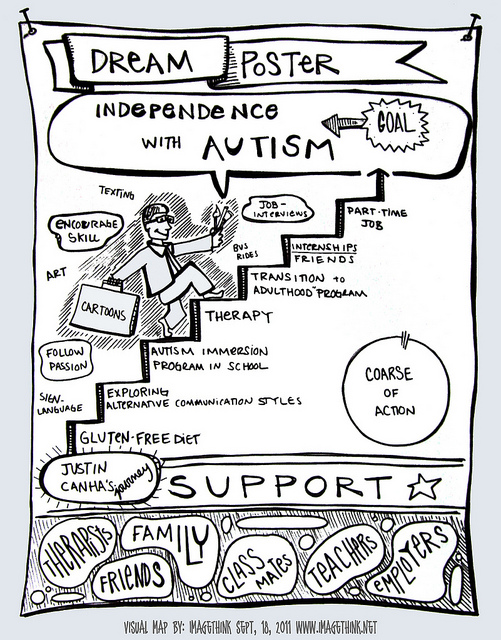 DREAM POSTER
INDEPENDENCE
WITH AUTISM
GOAL
TEXTING
ENCOURAGE
SKILL
ART
CARTOONS
FOLLOW
PASSION
SIGN-
LANGUAGE
JOB-
INTERVIEWS
BUS
RIDES
PART-TIME
JOB
INTERNSHIPS
FRIENDS
TRANSITION to
ADULTHOOD" PROGRAM
THERAPY
AUTISM IMMERSION
PROGRAM IN SCHOOL
EXPLORING
ALTERNATIVE COMMUNICATION STYLES
GLUTEN-FREE DIET
COARSE
OF
ACTION
JUSTIN
CANHA'S journey
SUPPORT
THERAPISTS
FAMILY
FRIENDS
CLASS
MATES
TEACHERS
EMPLOYERS
VISUAL MAP BY: IMAGETHINK SEPT, 18, 2011 WWW.IMAGETHINK.NET